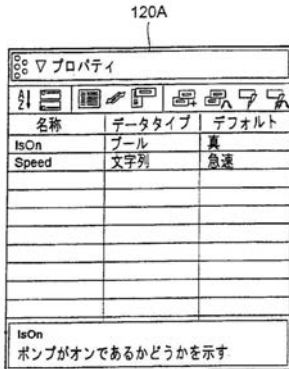 120A
▽ プロパティ
名称 データタイプ デフォルト
IsOn ブール 真
Speed 文字列 急速
IsOn
ポンプがオンであるかどうかを示す